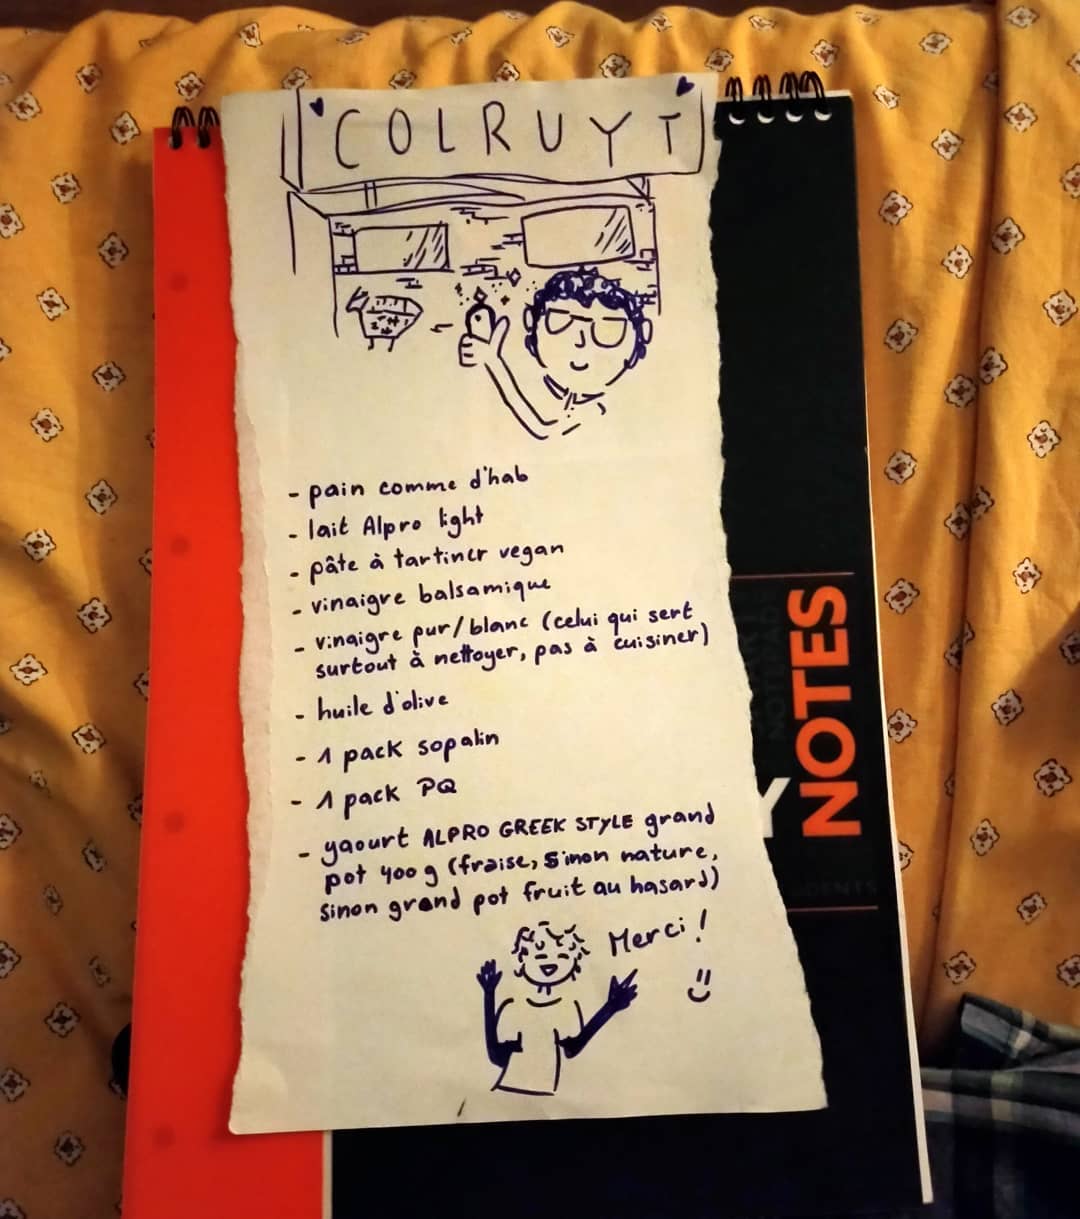 COLRUYT
- pain comme d'hab
- lait Alpro light
- pâte à tartiner vegan
- vinaigre balsamique
- vinaigre pur/blanc (celui qui sert
surtout à nettoyer, pas à cuisiner)
- huile d'olive
- 1 pack sopalin
- 1 pack PQ
- yaourt ALPRO GREEK STYLE grand
pot 400 g (fraise, sinon nature,
sinon grand pot fruit au hasard)
Merci !
NOTES